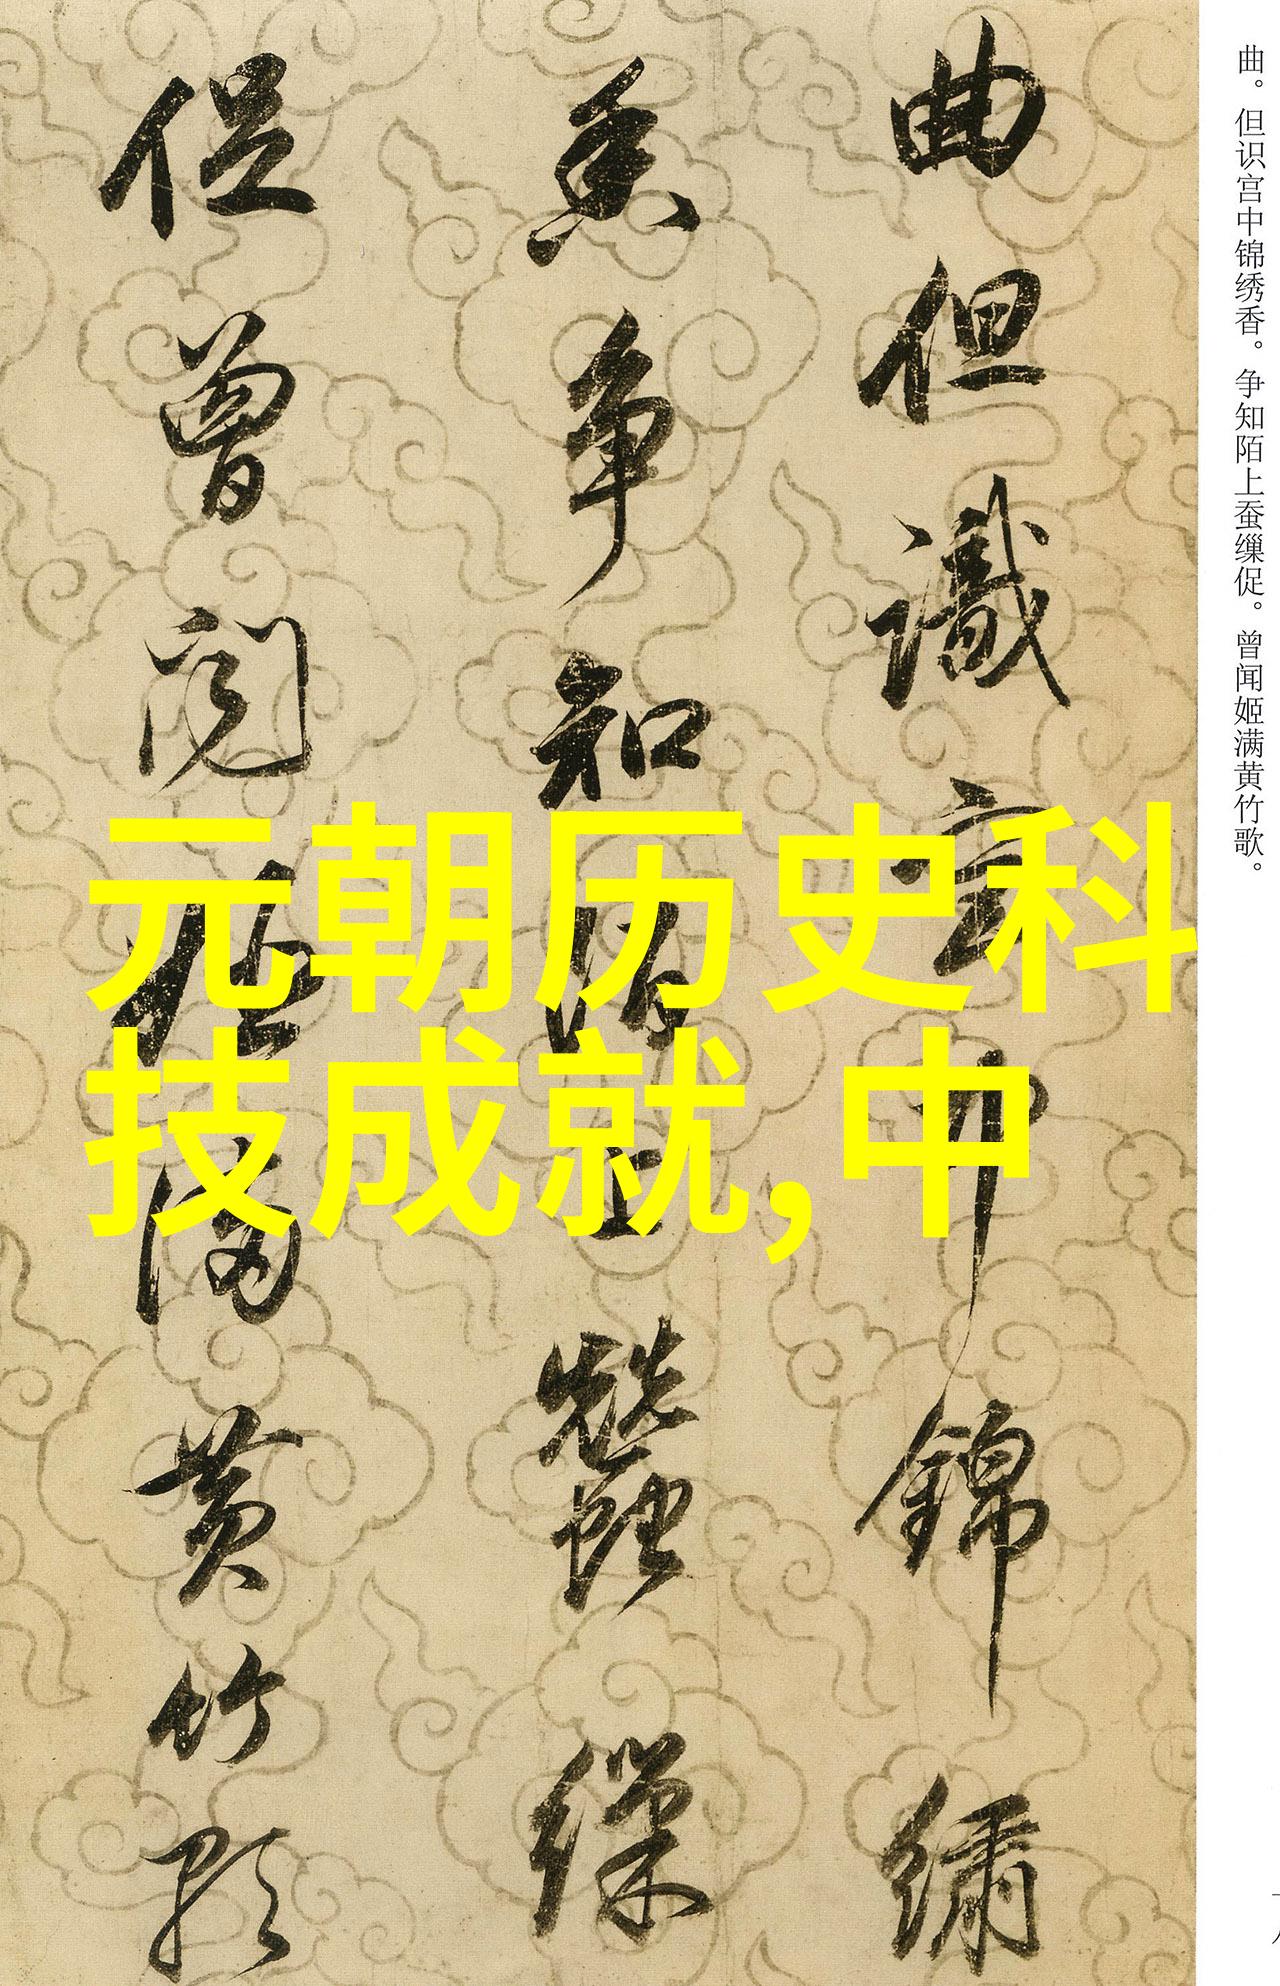 曲。但识宫中锦绣香。争知陌上蚕缫促。曾闻姬满黄竹歌。
曲但識宮中錦繡
香争知陌上蠶繅
促曾闻姬满黄竹歌
元朝历史科
技成就,中